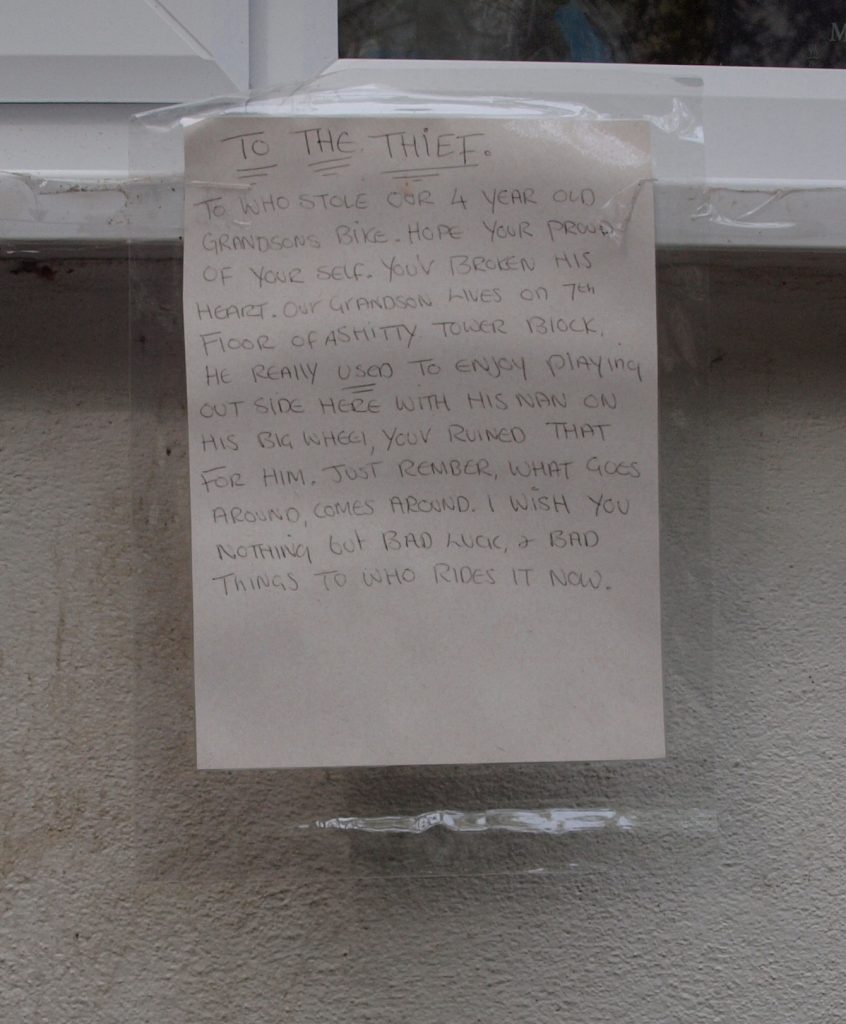 M
TO THE THIEF.
TO WHO STOLE OUR 4 YEAR OLD
GRANDSONS BIKE. HOPE YOUR PROUD
OF YOUR SELF. YOU'V BROKEN HIS
HEART. OUR GRANDSON LIVES ON 7th
FLOOR OF A SHITTY TOWER BLOCK.
HE REALLY USED TO ENJOY PlAYING
OUT SIDE HERE WITH HIS NAN ON
HIS BIG WHEEl, YOU'V RUINED THAT
FOR HIM. JUST REMBER, WHAT GOES
AROUND, COMES AROUND. I WISH YOU
NOTHING but BAD LUCK, & BAD
THINGS TO WHO RIDES IT NOW.